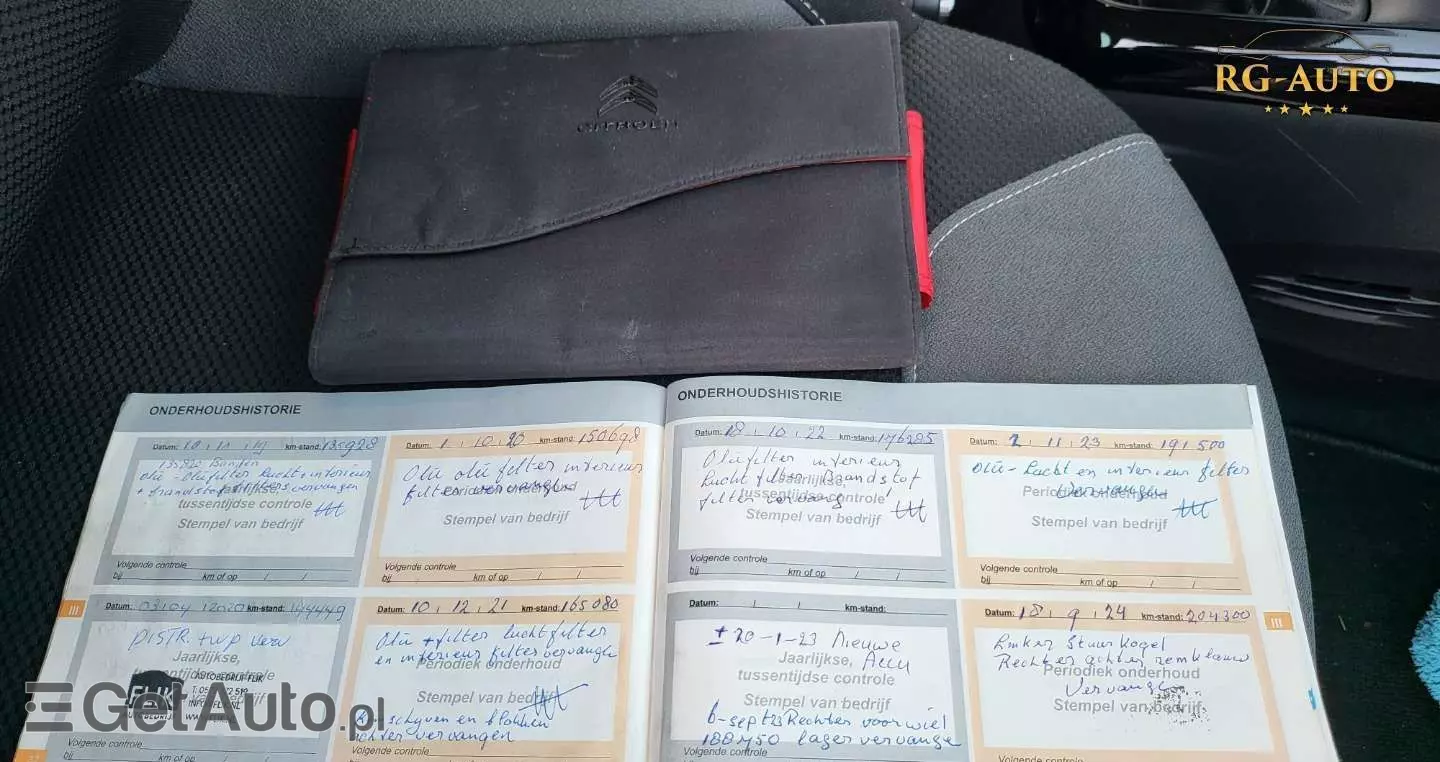 RG-AUTO
CITROËN
ONDERHOUDSHISTORIE
Datum: 10 . 11 . 19 km-stand: 135928
Banden
olie - Oliefilter lucht interieur
+ brandstof filters vervangen
Jaarlijkse,
tussentijdse controle
Stempel van bedrijf
Volgende controle
bij km of op / /
Datum: 1 . 10 . 20 km-stand: 150698
Olie olie filter interieur
filter vervangen
Periodiek onderhoud
Stempel van bedrijf
Volgende controle
bij km of op / /
Datum: 03/04 / 2020 km-stand: 144449
DISTR. + wp verv
Jaarlijkse,
tussentijdse controle
FLIK
AUTOBEDRIJF
AUTOBEDRIJF FLIK
Volgende controle
bij km of op / /
Datum: 10 . 12 . 21 km-stand: 165080
Olie + filter luchtfilter
en interieur filter vervangen
Periodiek onderhoud
Stempel van bedrijf
schijven en blokken
achter vervangen
Volgende controle
bij km of op / /
III
ONDERHOUDSHISTORIE
Datum: 18 . 10 . 22 km-stand: 176285
Oliefilter interieur
lucht filter brandstof
filter vervang
Jaarlijkse,
tussentijdse controle
Stempel van bedrijf
Volgende controle
bij km of op / /
Datum: 2 . 11 . 23 km-stand: 191500
Olie - Lucht en interieur filter
vervangen
Periodiek onderhoud
Stempel van bedrijf
Volgende controle
bij km of op / /
Datum: / / km-stand:
± 20-1-23 Nieuwe
Accu
Jaarlijkse,
tussentijdse controle
Stempel van bedrijf
6-sept 23 Rechter voorwiel
188450 lager vervangen
Volgende controle
Datum: 18 . 9 . 24 km-stand: 204300
Linker Stuurkogel
Rechter achter remklauw
Vervangen
Periodiek onderhoud
Stempel van bedrijf
Volgende controle
III
GetAuto.pl